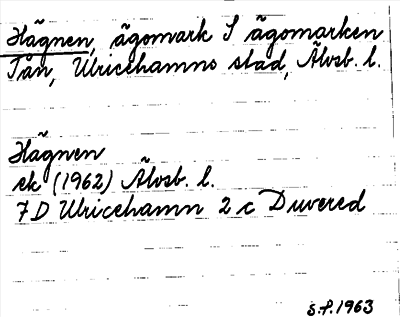 Hägnen, ägomark S ägomarken
Tån, Ulricehamns stad, Älvsb. l.
Hägnen
ek (1962) Älvsb. l.
7D Ulricehamn 2 c Duvered
S.P. 1963